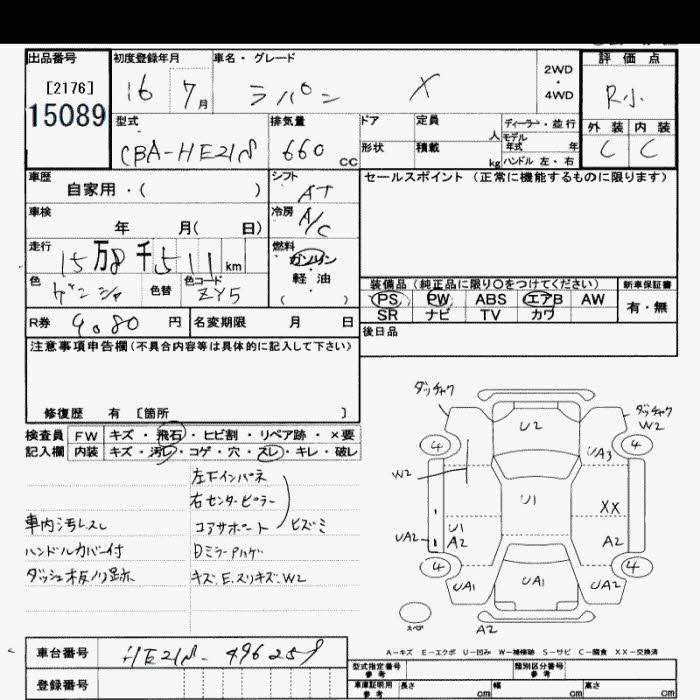 出品番号 初度登録年月 車名・グレード 2WD ・ 4WD 評価点
[2176] 16 7月 ラパン X R小
15089
型式 排気量 ドア 定員 人 ディーラー・並行 外装 内装
CBA-HE21S 660 CC 形状 積載 kg モデル年式 年 C C
ハンドル 左・右
車歴 自家用・( ) シフト AT セールスポイント(正常に機能するものに限ります)
車検 年 月( 日) 冷房 A/C
走行 15万8千511km 燃料 ガソリン・軽油 ( )
色 色替 色コード ZY5
装備品(純正品に限り○をつけてください) 新車保証書
PS PW ABS エアB AW 有・無
SR ナビ TV カワ
R券 9080円 名変期限 月 日 後日品
注意事項申告欄(不具合内容等は具体的に記入して下さい)
修復歴 有 [箇所 ]
検査員 FW キズ・飛石・ヒビ割・リペア跡・×要
記入欄 内装 キズ・汚レ・コゲ・穴・スレ・キレ・破レ
左下インパネ
右センターピラー
車内汚レスレ コアサポート ヒズミ
ハンドルカバー付 Dミラーアハゲ
ダッシュ板ノリ跡 キズ.E.スリキズ.W2
ダッチャク ダッチャク W2
U2
4 4
UA3
W2
U1 XX
UA2 U1 A2 A2
4 4
UA1 UA1 UA2
スペア A2
A-キズ E-エクボ U-凹み W-補修跡 S-サビ C-腐食 XX-交換済
車台番号 HE21S-496259
登録番号
型式指定番号 参考 類別区分番号 参考
車庫証明用 参考 長さ cm 幅 cm 高さ cm